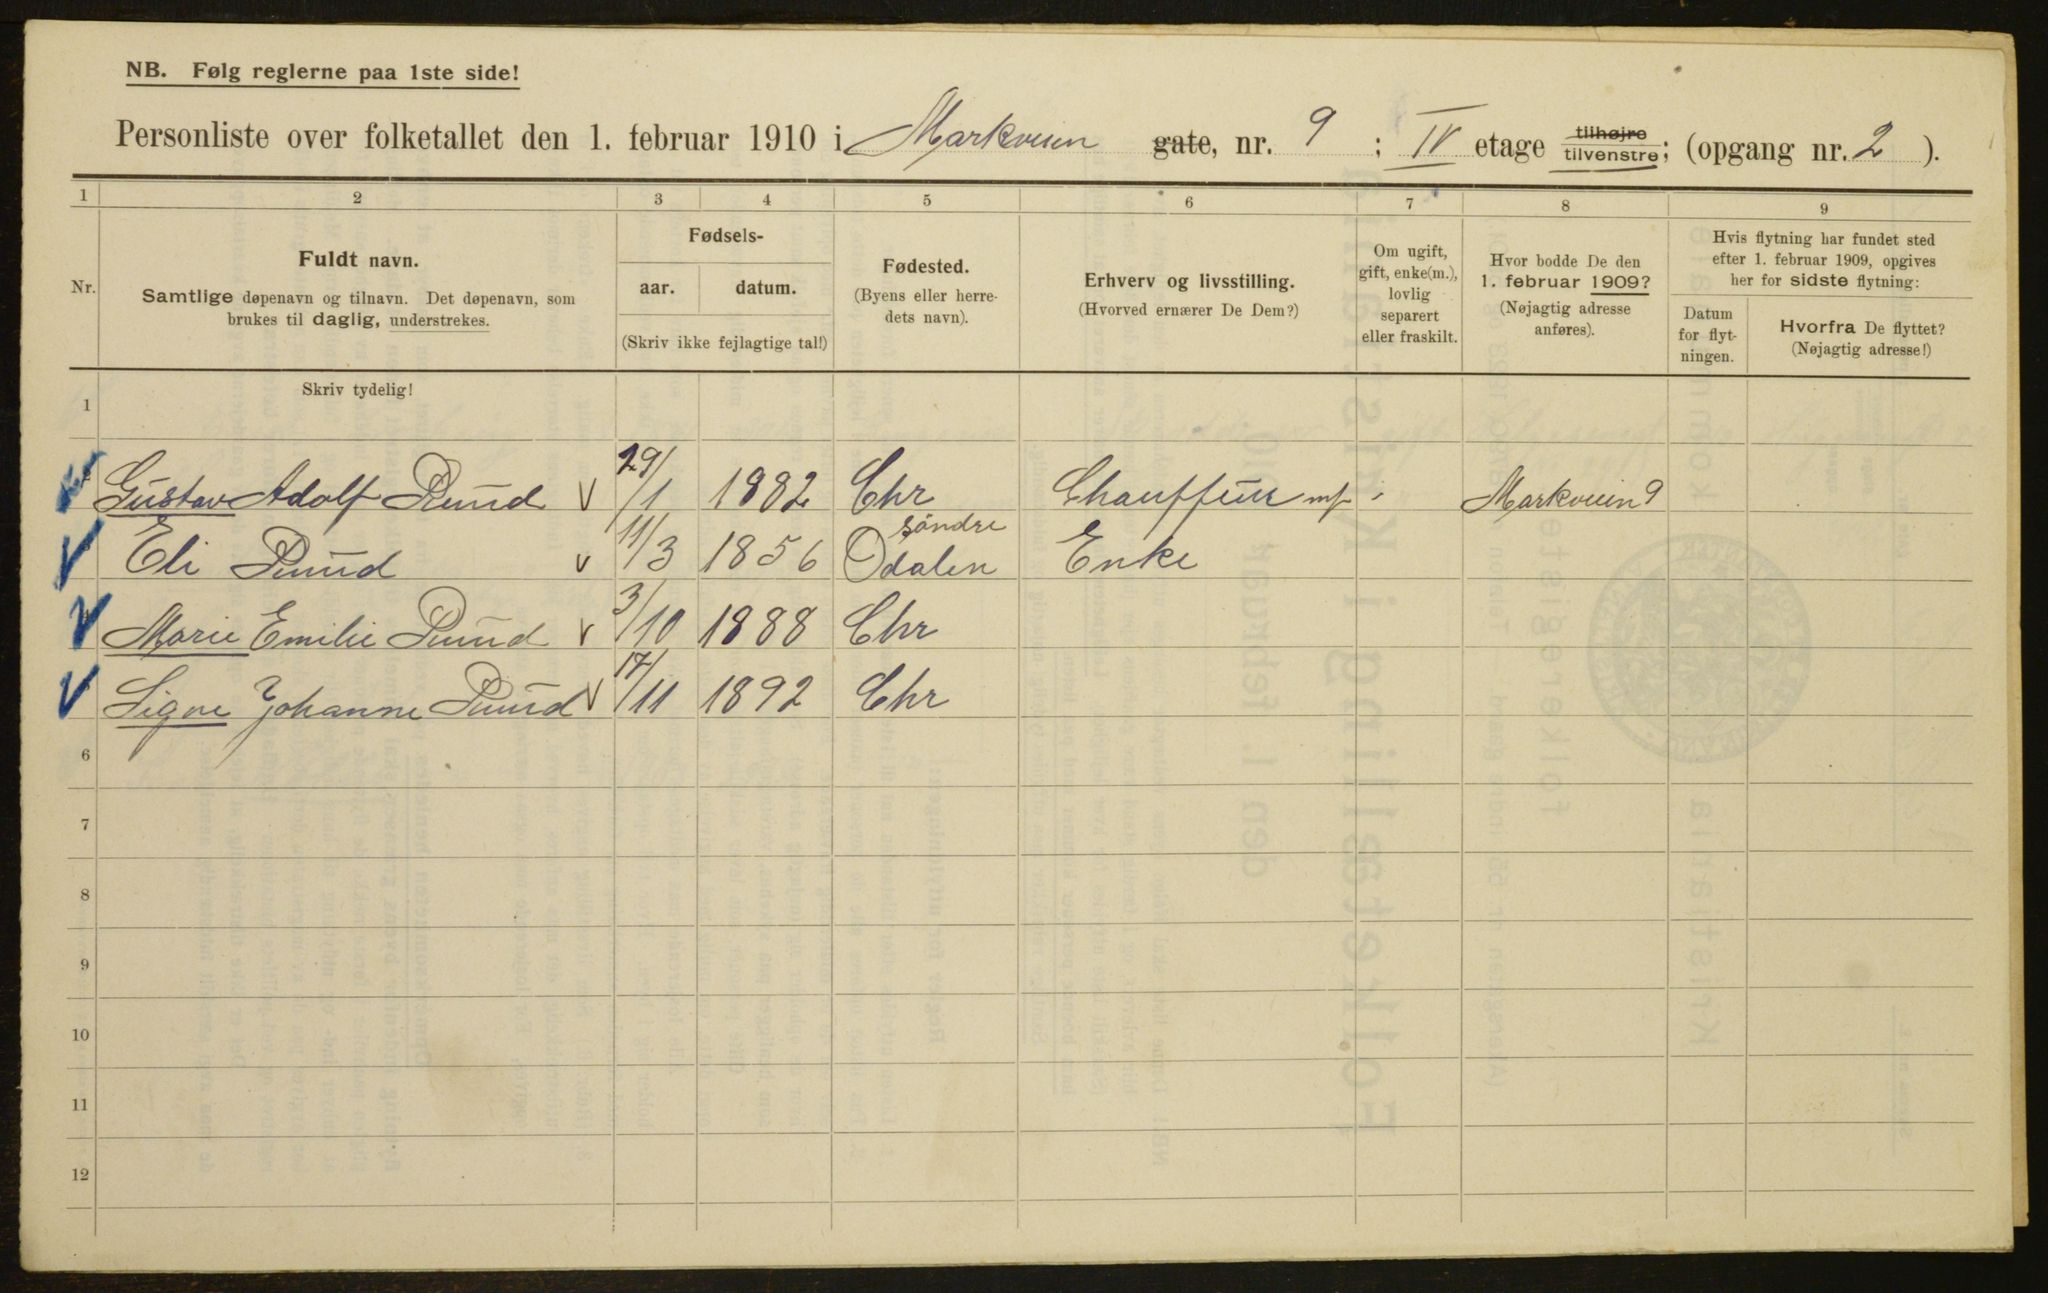 NB. Følg reglerne paa 1ste side!
Personliste over folketallet den 1. februar 1910 i Markveien gate, nr. 9 ; IV etage tilhøjre tilvenstre; (opgang nr. 2 ).
1 2 3 4 5 6 7 8 9
Nr.
Fuldt navn.
Samtlige døpenavn og tilnavn. Det døpenavn, som
brukes til daglig, understrekes.
Fødsels-
aar. datum.
(Skriv ikke fejlagtige tal!)
Fødested.
(Byens eller herre-
dets navn).
Erhverv og livsstilling.
(Hvorved ernærer De Dem?)
Om ugift,
gift, enke(m.),
lovlig
separert
eller fraskilt.
Hvor bodde De den
1. februar 1909?
(Nøjagtig adresse
anføres).
Hvis flytning har fundet sted
efter 1. februar 1909, opgives
her for sidste flytning:
Datum
for flyt-
ningen.
Hvorfra De flyttet?
(Nøjagtig adresse!)
Skriv tydelig!
1
Gustav Adolf Ruud 29/1 1882 Chr Chauffeur Markveien 9
Eli Ruud 11/3 1856 søndre Odalen Enke
Marie Emilie Ruud 3/10 1888 Chr
Signe Johanne Ruud 17/11 1892 Chr
6
7
8
9
10
11
12